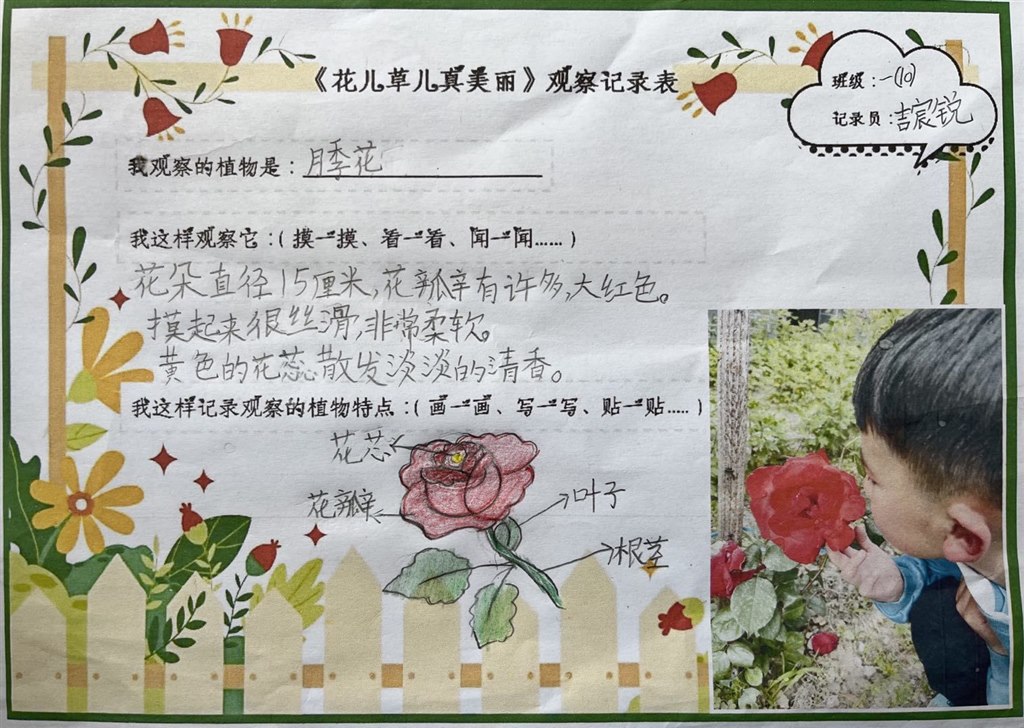 《花儿草儿真美丽》观察记录表
班级：一(10)
记录员：吉宸锐
我观察的植物是：月季花
我这样观察它：（摸一摸、看一看、闻一闻……）
花朵直径15厘米,花瓣有许多,大红色。
摸起来很丝滑,非常柔软。
黄色的花蕊散发淡淡的清香。
我这样记录观察的植物特点：（画一画、写一写、贴一贴……）
花芯
花瓣
叶子
根茎